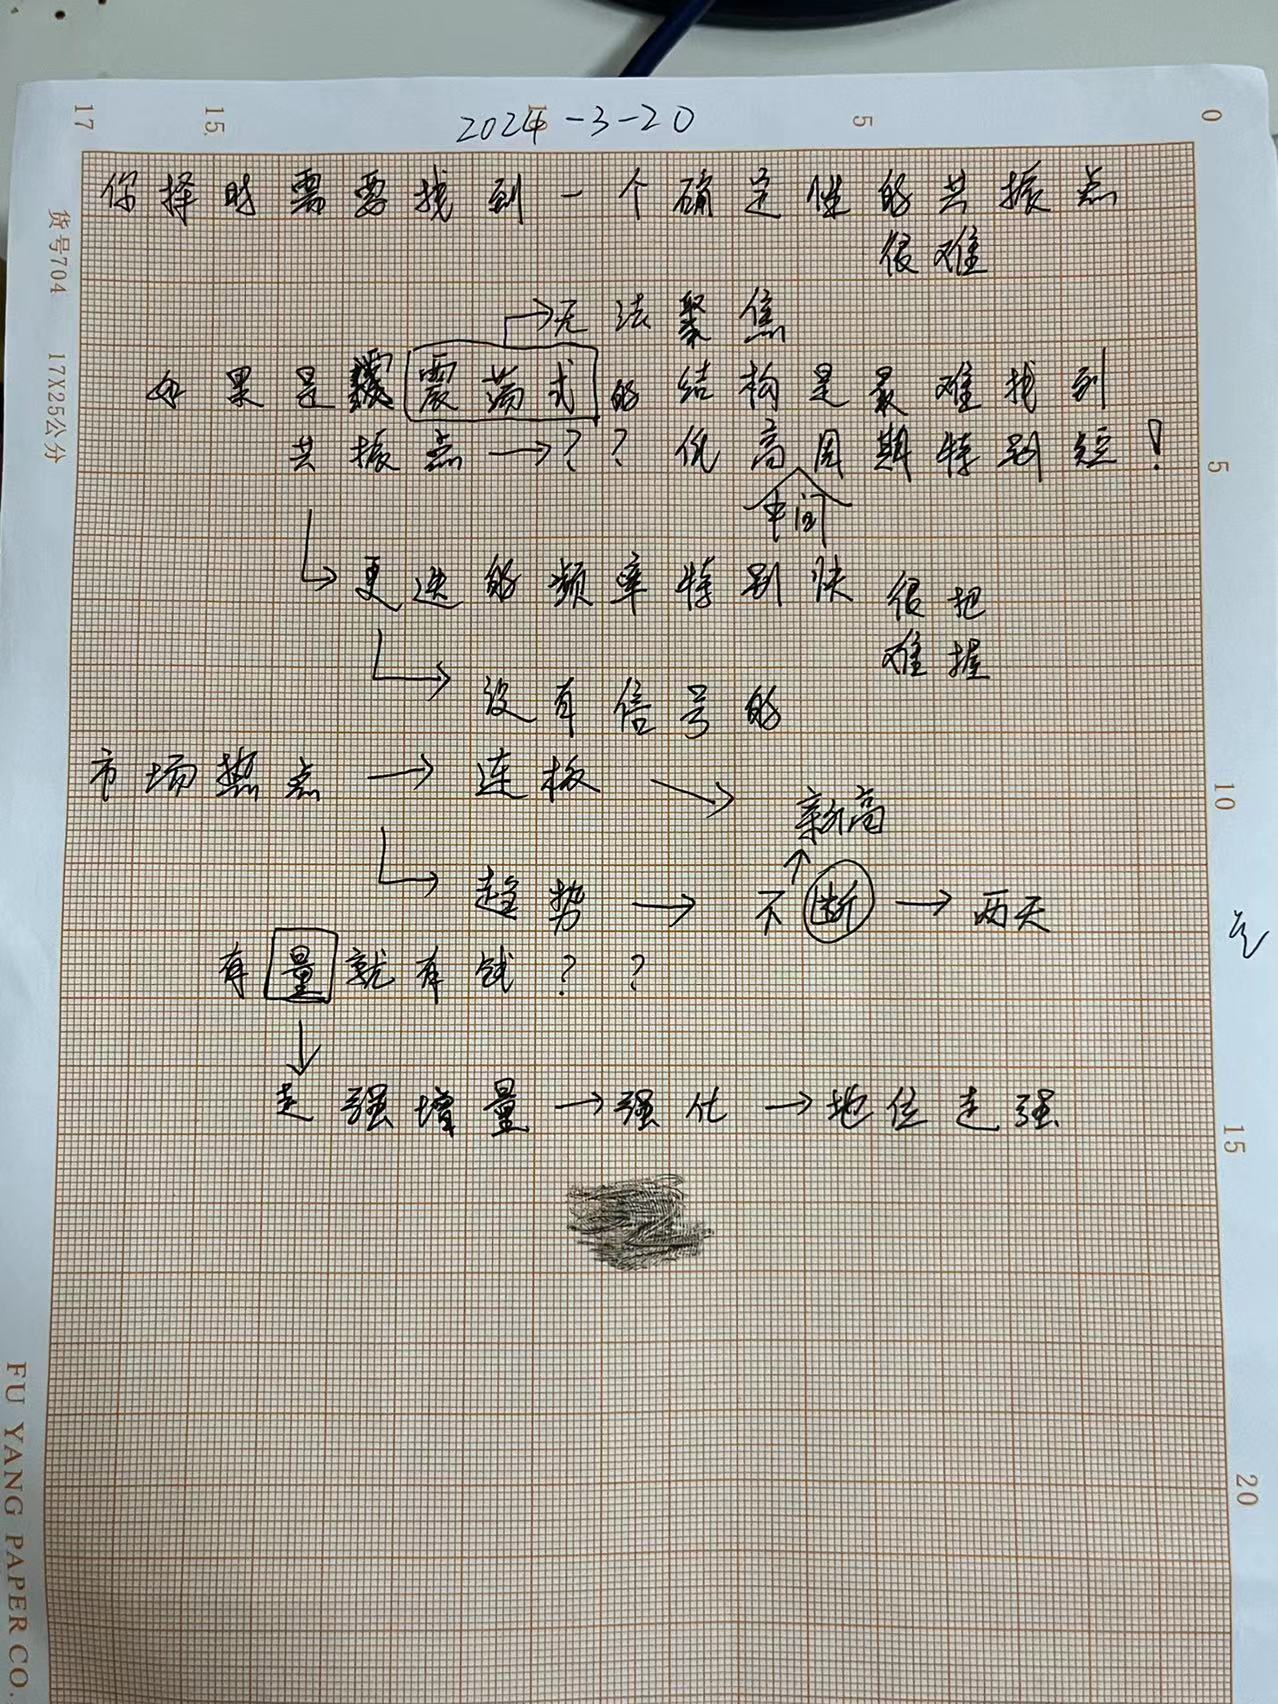 17 15 10 5 0
2024-3-20
你择时需要找到一个确定性的共振点
很难
→无法聚焦
如果是震荡式的结构是最难找到
共振点→？？低高周期特别短！
中间
→更迭的频率特别快
很把
难握
→没有信号的
市场热点→连板→
新高
↑
→趋势→不断→两天
有量就有钱？？
↓
走强增量→强化→地位走强
货号704 17X25公分
5
10
15
20
FU YANG PAPER CO.